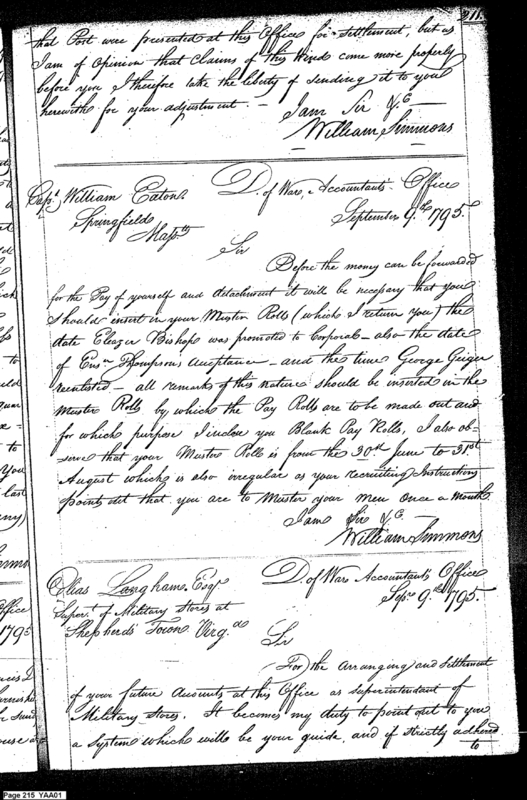 211.
that Post were presented at this Office for Settlement, but as
I am of Opinion that Claims of this Kind come more properly
before you I therefore take the liberty of sending it to you
herewith for your adjustment. —
I am Sir &c
William Simmons
Capt. William Eaton
D. of War, Accountant's Office
Springfield
September 9.th 1795.
Massts
Sir
Before the money can be forwarded
for the Pay of yourself and detachment it will be necessary that you
should insert in your Muster Rolls (which I return you) the
date Eleazer Bishop was promoted to Corporal — also the date
of Ensn Thompson's acceptance — and the time George Geiger
reenlisted — all remarks of this nature should be inserted in the
Muster Rolls by which the Pay Rolls are to be made out and
for which purpose I inclose you Blank Pay Rolls, I also ob-
serve that your Muster Roll is from the 30th June to 31st
August which is also irregular as your recruiting Instructions
points out that you are to Muster your men once a Month
I am Sir &c
William Simmons
Elias Langham Esqr
D. of War Accountant's Office
Supert of Military Stores at
Sepr 9.th 1795.
Shepherds Town Virga
Sir
For the arranging and settlement
of your future Accounts at this Office as Superintendant of
Military Stores. It becomes my duty to point out to you
a System which will be your guide, and if strictly adhered
to
Page 215 YAA01